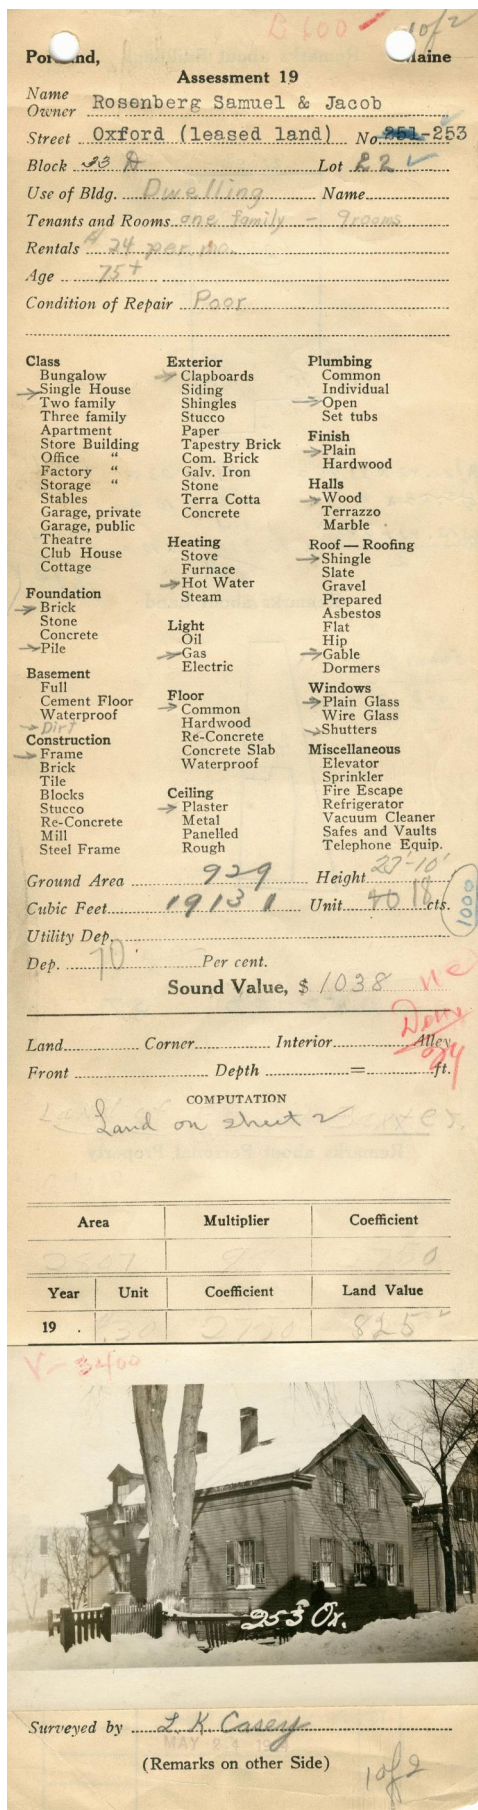 B 600
1 of 2
Portland, Maine
Assessment 19
Name
Owner Rosenberg Samuel & Jacob
Street Oxford (leased land) No. 251-253
Block 23 D Lot E 2
Use of Bldg. Dwelling Name
Tenants and Rooms one family - 9 rooms
Rentals 24 per mo.
Age 75+
Condition of Repair Poor
Class
Bungalow
Single House
Two family
Three family
Apartment
Store Building
Office "
Factory "
Storage "
Stables
Garage, private
Garage, public
Theatre
Club House
Cottage
Foundation
Brick
Stone
Concrete
Pile
Basement
Full
Cement Floor
Waterproof
Dirt
Construction
Frame
Brick
Tile
Blocks
Stucco
Re-Concrete
Mill
Steel Frame
Exterior
Clapboards
Siding
Shingles
Stucco
Paper
Tapestry Brick
Com. Brick
Galv. Iron
Stone
Terra Cotta
Concrete
Heating
Stove
Furnace
Hot Water
Steam
Light
Oil
Gas
Electric
Floor
Common
Hardwood
Re-Concrete
Concrete Slab
Waterproof
Ceiling
Plaster
Metal
Panelled
Rough
Plumbing
Common
Individual
Open
Set tubs
Finish
Plain
Hardwood
Halls
Wood
Terrazzo
Marble
Roof — Roofing
Shingle
Slate
Gravel
Prepared
Asbestos
Flat
Hip
Gable
Dormers
Windows
Plain Glass
Wire Glass
Shutters
Miscellaneous
Elevator
Sprinkler
Fire Escape
Refrigerator
Vacuum Cleaner
Safes and Vaults
Telephone Equip.
Ground Area 929 Height 20'-10'
Cubic Feet 19131 Unit 40 18 cts.
1000
Utility Dep.
Dep. 70 Per cent.
Sound Value, $ 1038
Land Corner Interior Alley
Front Depth = ft.
COMPUTATION
Land on sheet 2
Area Multiplier Coefficient
Year Unit Coefficient Land Value
19 . 825
V-3400
253 Ox.
Surveyed by L. K. Casey
(Remarks on other Side)
1 of 2